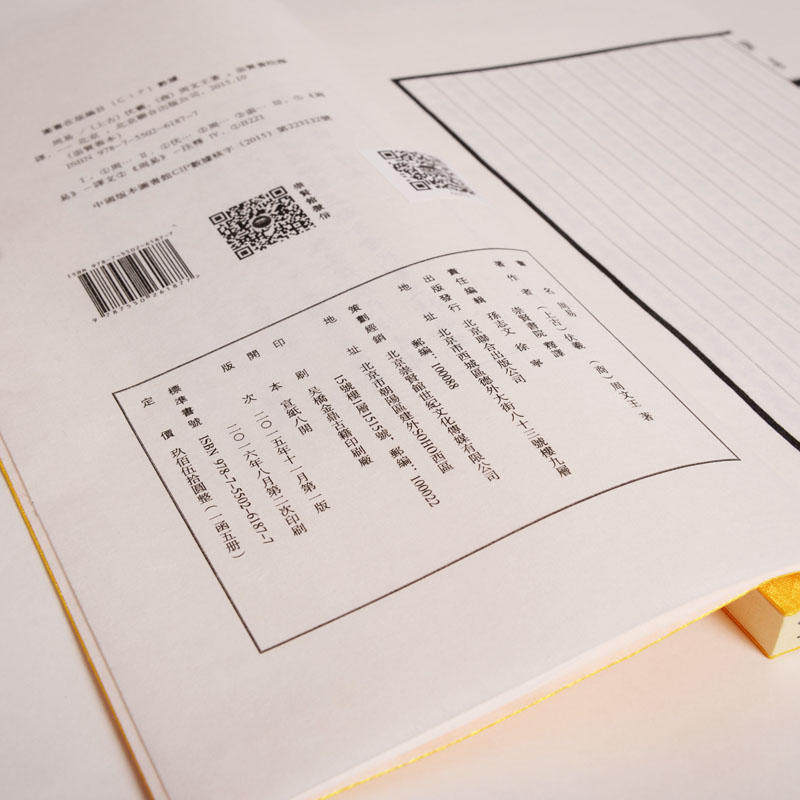 圖書在版編目（CIP）數據
周易／（上古）伏羲，（商）周文王著；崇賢書院釋
譯．—北京：北京聯合出版公司，2015.10
（崇賢善本）
ISBN 978-7-5502-6187-7
Ⅰ．①周… Ⅱ．①伏… ②周… ③崇… Ⅲ．①《周
易》—譯文②《周易》—注釋 Ⅳ．①B221
中國版本圖書館CIP數據核字（2015）第223132號
ISBN 978-7-5502-6187-7
9787550261877
崇賢館微信
書　名　周易
著作者　（上古）伏羲　（商）周文王　著
崇賢書院　釋譯
責任編輯　孫志文　徐　寧
出版發行　北京聯合出版公司
地　址　北京市西城區德外大街八十三號樓九層
郵編：100088
策劃經銷　北京崇賢館世紀文化傳媒有限公司
地　址　北京市朝陽區建外SOHO西區
15號樓1層1515號，郵編：10022
印　刷　吴橋金鼎古籍印刷廠
開　本　宣紙八開
版　次　二〇一五年十一月第一版
二〇一六年八月第二次印刷
標準書號　ISBN 978-7-5502-6187-7
定　價　玖佰伍拾圓整（一函五册）